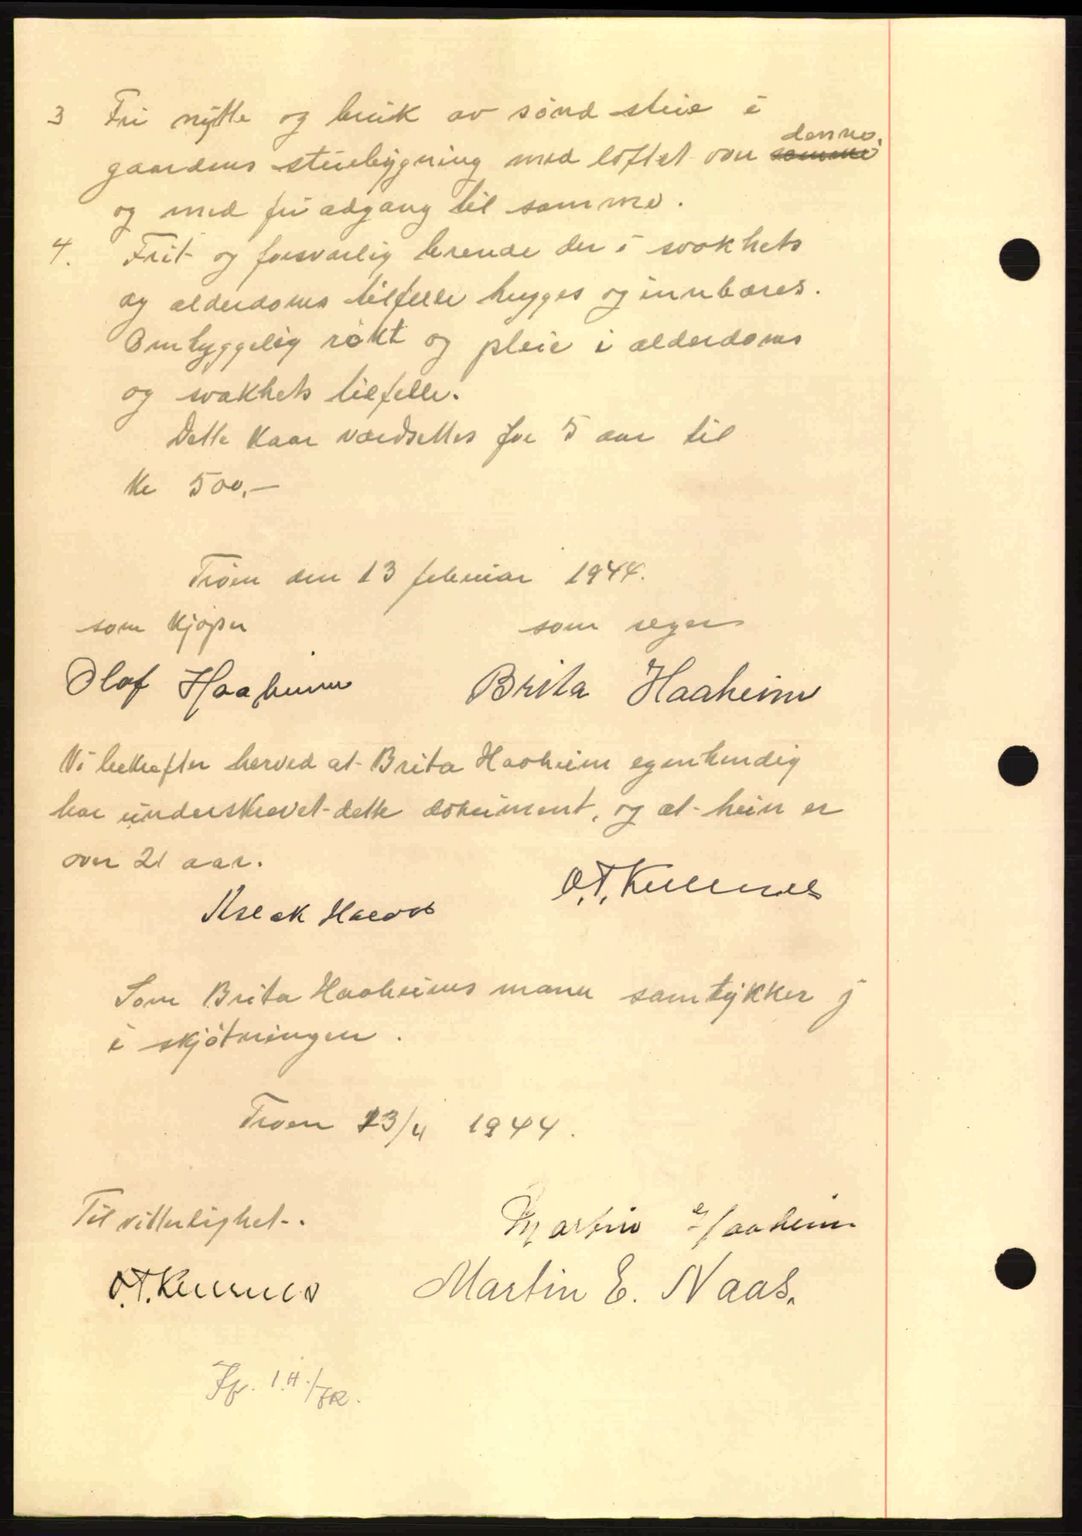 3 Fri nytte og bruk av sønd stue i
gaardens stuebygning med loftet over ~~samme~~ denne.
og med fri adgang til samme.
4. Frit og forsvarlig brende der i svakhets
og alderdoms tilfelle hugges og innbæres.
Omhyggelig røkt og pleie i alderdoms
og svakhets tilfelle.
Dette kaar værdsettes for 5 aar til
kr 500,-
Troen den 13 februar 1944.
som kjøper som selger
Olaf Haaheim Brita Haaheim
Vi bekrefter herved at Brita Haaheim egenhendig
har underskrevet dette dokument, og at hun er
over 21 aar.
O.T.
Som Brita Haaheims mann samtykker j
i skjøtningen.
Troen 23/4 1944.
Til vitterlighet.
Martin Haaheim
O.T. Martin E. Naas.